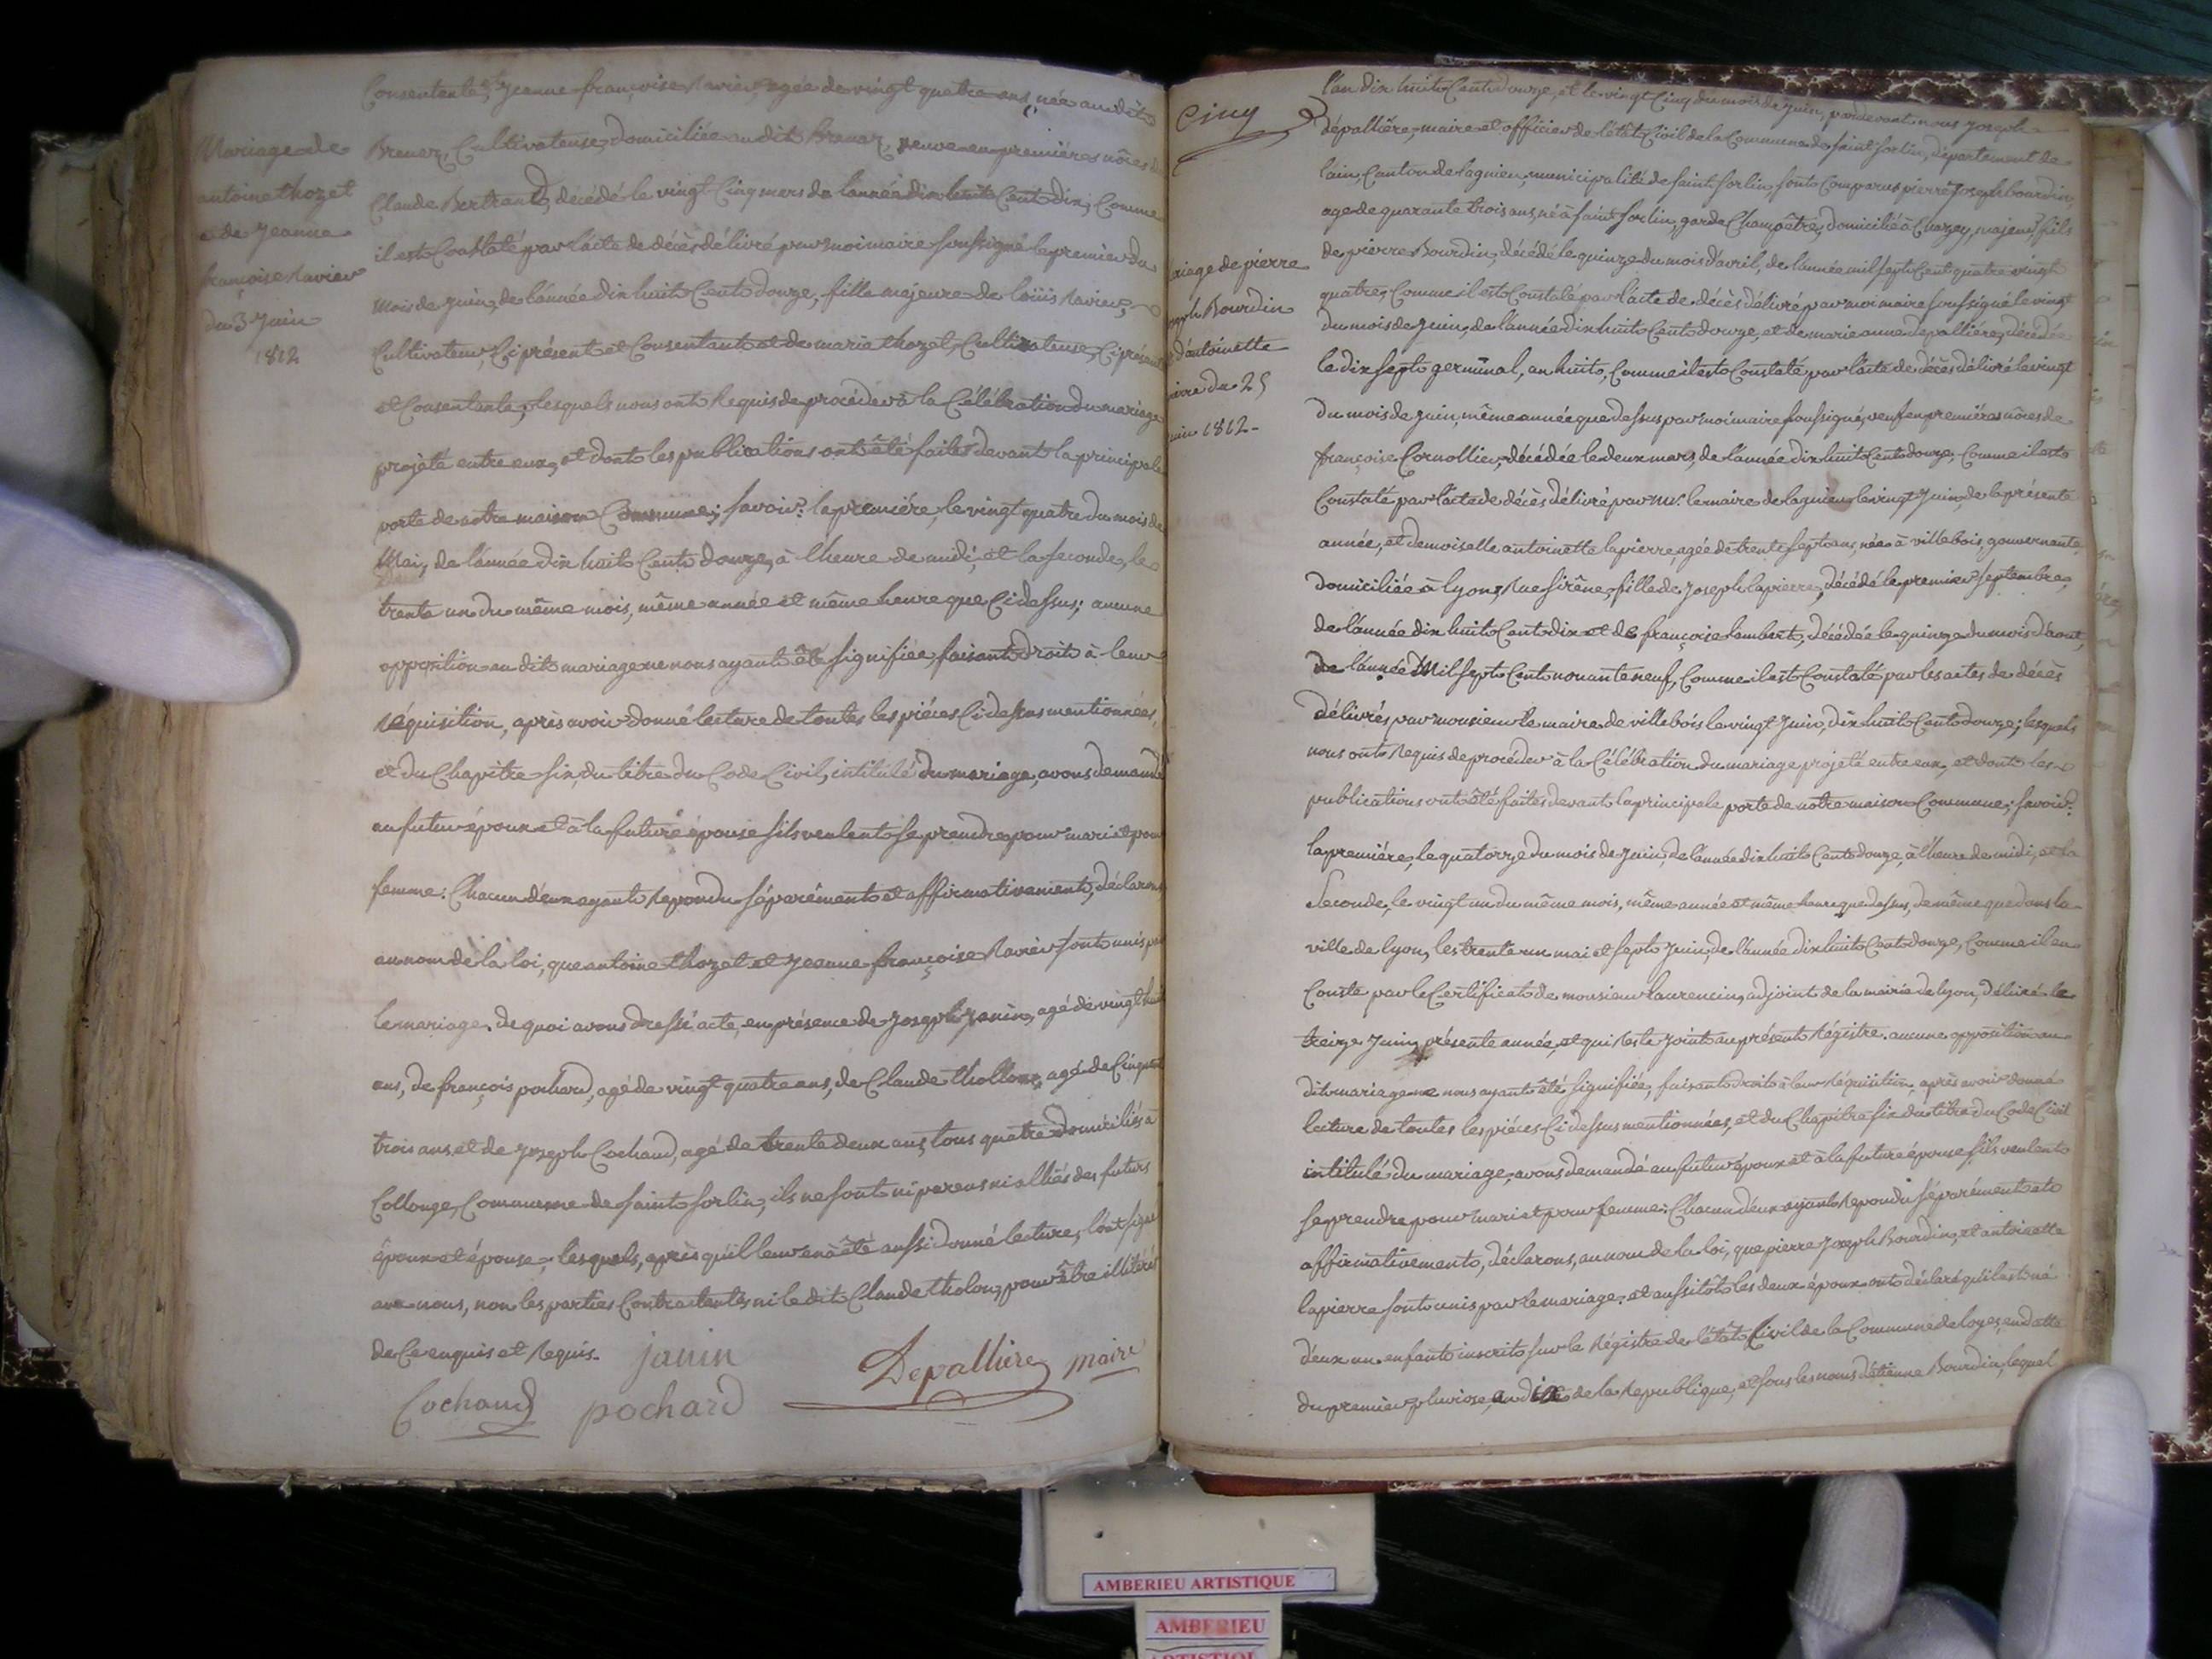 Mariage de
antoine thozet
et de Jeanne
françoise Ravier
du 3 Juin
1812
Consentante, et Jeanne françoise Ravier, agée de vingt quatre ans, née au dit
Brenaz, Cultivateuse, domiciliée au dit Brenaz, veuve en premières nôces de
Claude Bertrand, décédé le vingt Cinq mars de l'année dix huit Cent dix, Comme
il est Constaté par l'acte de décès délivré par moi maire soussigné le premier du
mois de Juin, de l'année dix huit Cent douze, fille majeure de loüis Ravier,
Cultivateur, Ci présent et Consentant et de marie thozet, Cultivateuse, Ci présente
et Consentante; lesquels nous ont Requis de procéder à la Célébration du mariage
projeté entre eux, et dont les publications ont été faites devant la principale
porte de notre maison Commune; savoir: la première, le vingt quatre du mois de
Mai, de l'année dix huit Cent douze, à l'heure de midi; et la seconde, le
trente un du même mois, même année et même heure que Ci dessus; aucune
opposition au dit mariage ne nous ayant été signifiée, faisant droit à leur
Réquisition, après avoir donné lecture de toutes les pièces Ci dessus mentionnées,
et du Chapitre six, du titre du Code Civil, intitulé du mariage, avons demandé
au futur époux et à la future épouse s'ils veulent se prendre pour mari et pour
femme: Chacun d'eux ayant Répondu séparément et affirmativement, déclarons
au nom de la loi, que antoine thozet et Jeanne françoise Ravier sont unis par
le mariage. de quoi avons dressé acte, en présence de Joseph Janin, agé de vingt huit
ans, de françois pochard, agé de vingt quatre ans, de Claude thollon, agé de Cinquante
trois ans et de Joseph Cochaud, agé de trente deux ans, tous quatre domiciliés à
Collonge, Commune de saint sorlin, ils ne sont ni parens ni alliés des futurs
époux et épouse; lesquels, après qu'il leur en a été aussi donné lecture, l'ont signé
avec nous, non les parties Contractantes ni le dit Claude tholon, pour être illitérés
de Ce enquis et Requis. janin
Cochaud pochard Depallière maire
Cinq
riage de pierre
seph Bourdin
d'antoinette
ierre du 25
uin 1812.
l'an dix huit Cent douze, et le vingt Cinq du mois de Juin, pardevant nous Joseph
dépallière, maire et officier de l'état Civil de la Commune de saint sorlin, département de
l'ain, Canton de lagnieu, municipalité de saint sorlin, sont Comparus pierre Joseph bourdin,
age de quarante trois ans, né à saint sorlin, garde Champêtre, domicilié à Chazey, majeur, fils
de pierre Bourdin, décédé le quinze du mois d'avril, de l'année mil sept Cent quatre vingt
quatre, Comme il est Constaté par l'acte de décès délivré par moi maire soussigné le vingt
du mois de Juin, de l'année dix huit Cent douze, et de marie anne depallière, décédée
le dix sept germinal, an huit, Comme il est Constaté par l'acte de décès délivré le vingt
du mois de Juin, même année que dessus par moi maire soussigné, veuf en premières nôces de
françoise Cornollier, décédée le deux mars, de l'année dix huit Cent douze, Comme il est
Constaté par l'acte de décès délivré par mr. le maire de lagnieu le vingt Juin, de la présente
année, et demoiselle antoinette lapierre, agée de trente sept ans, née à villebois, gouvernante,
domiciliée à lyon, Rue sirène, fille de Joseph lapierre, décédé le premier septembre,
de l'année dix huit Cent dix et de françoise lambert, décédée le quinze du mois d'aout,
de l'année Mil sept Cent nonante neuf, Comme il est Constaté par les actes de décès
délivrés par monsieur le maire de villebois le vingt Juin, dix huit Cent douze; lesquels
nous ont Requis de procéder à la Célébration du mariage projeté entre eux, et dont les
publications ont été faites devant la principale porte de notre maison Commune; savoir:
la première, le quatorze du mois de Juin, de l'année dix huit Cent douze, à l'heure de midi, et la
Seconde, le vingt un du même mois, même année et même heure que dessus, de même que dans la
ville de lyon, les trente un mai et sept Juin, de l'année dix huit Cent douze, Comme il en
Conste par le Certificat de monsieur laurencin, adjoint de la mairie de lyon, délivré le
treize Juin, présente année, et qui Reste joint au présent Régistre. aucune opposition au
dit mariage ne nous ayant été signifiée, faisant droit à leur Réquisition, après avoir donné
lecture de toutes les pièces Ci dessus mentionnées, et du Chapitre six du titre du Code Civil
intitulé du mariage, avons demandé au futur époux et à la future épouse s'ils veulent
se prendre pour mari et pour femme: Chacun d'eux ayant Répondu séparément et
affirmativement, déclarons, au nom de la loi, que pierre Joseph Bourdin, et antoinette
lapierre sont unis par le mariage. et aussitôt les deux époux ont déclaré qu'il est né
d'eux un enfant inscrit sur le Régistre de l'état Civil de la Commune de loyes, en datte
du premier pluviose, an dix de la Republique, et sous les noms d'étienne Bourdin, lequel
AMBERIEU ARTISTIQUE
AMBERIEU
ARTISTIQUE